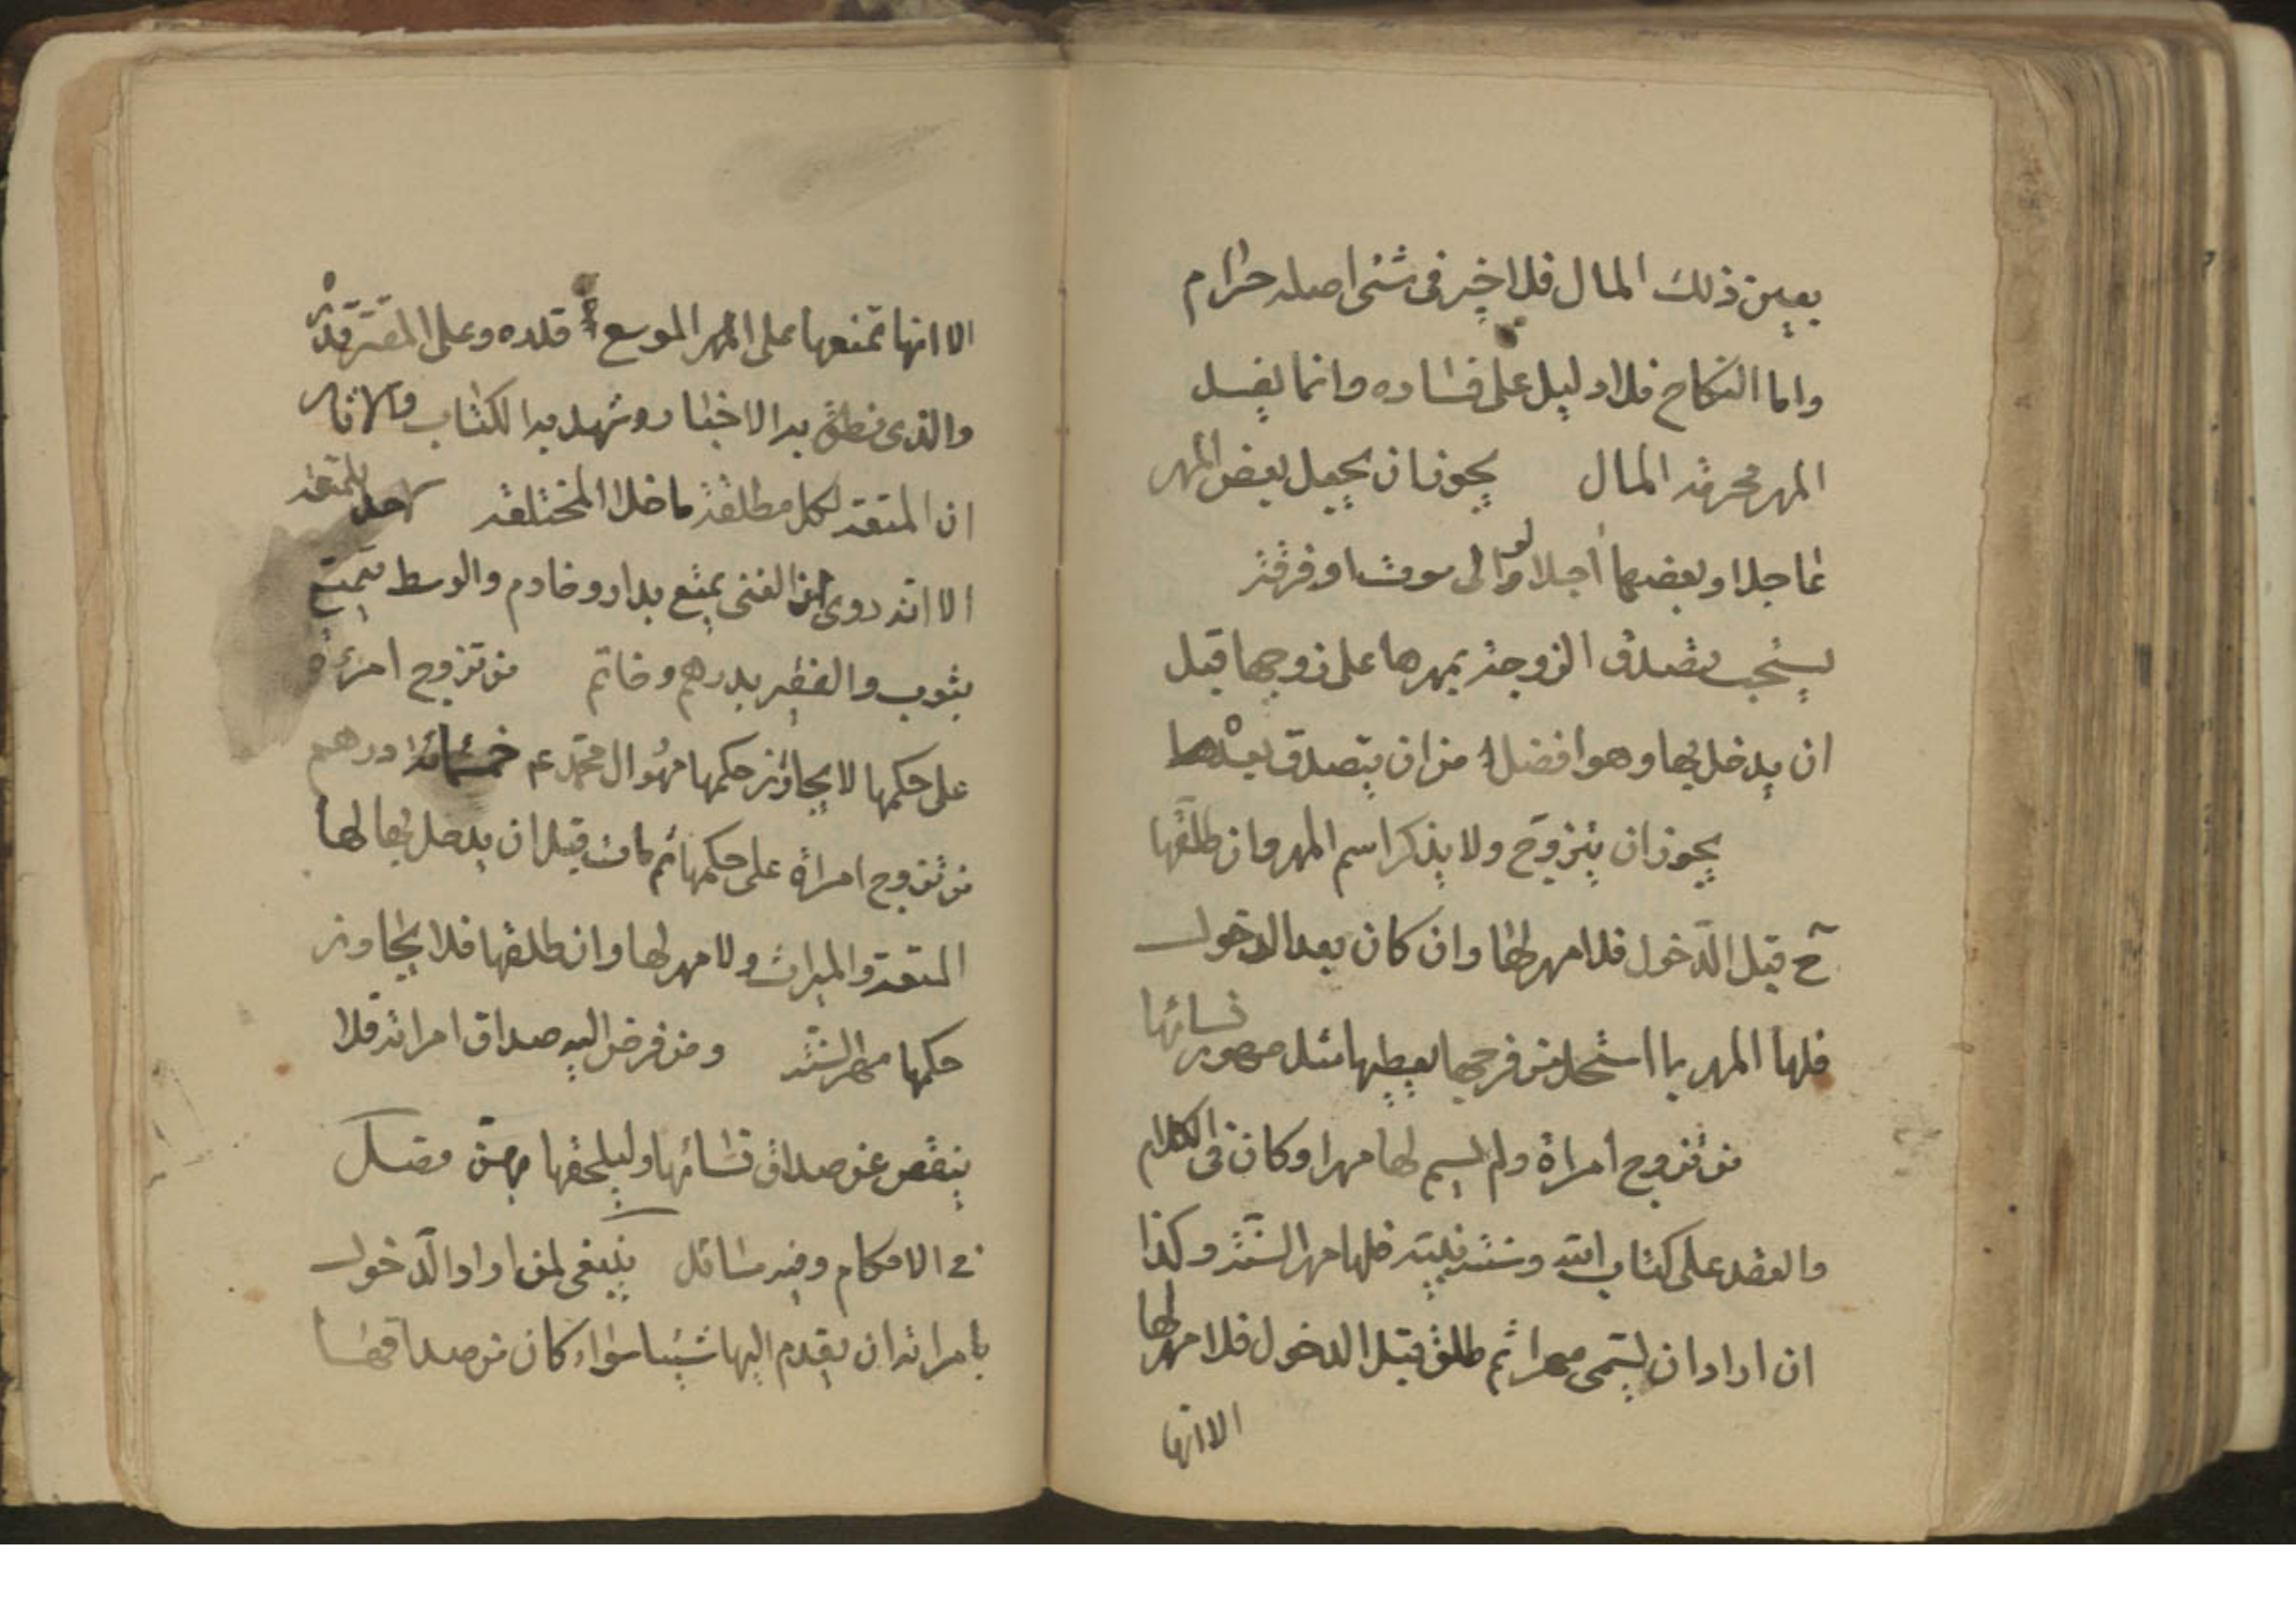 بعين ذلك المال فلا خير في شئ اصله حرام
واما النكاح فلا دليل على فساده وانما يفسد
المهر محرمة المال يجوز ان يجعل بعض المهر
عاجلا وبعضها اجلا ولو الى موت او فرقة
يستحب تصدق الزوجة بمهرها على زوجها قبل
ان يدخل بها وهو افضل من ان يتصدق بعده
يجوز ان يتزوج ولا يذكر اسم المهر وان طلقها
ح قبل الدخول فلا مهر لها وان كان بعد الدخول
فلها المهر بما استحل من فرجها يعطيها مثل مهور نسائها
من تزوج امراة ولم يسم لها مهرا وكان في الكلام
والعقد على كتاب الله وسنة نبيه فلها مهر السنة وكذا
ان اراد ان يسمى مهرا ثم طلق قبل الدخول فلا مهر لها
الا انها
الا انها تمنعها على المهر الموسع قدره وعلى المقتر قدره
والذى نطق به الاخبار وشهد به الكتاب والاثار
ان المتعة لكل مطلقة ما خلا المختلعة للمتعة
الا انه روى ان الغنى يمتع بدار وخادم والوسط يمتع
بثوب والفقير بدرهم وخاتم من تزوج امرءة
على حكمها لا يجاوز حكمها مهو ال محمد ع خمسمائة درهم
من تزوج امراة على حكمها ثم مات قبل ان يدخل بها لها
المتعة والميراث ولا مهر لها وان طلقها فلا يجاوز
حكمها مهر السنة ومن فرض اليه صداق امراته فلا
ينقص عن صداق نسائها وليلحقها بهن فصل
في الاحكام وفيه مسائل ينبغى لمن اراد الدخول
بامراته ان يقدم اليها شيئا سواء كان من صداقها